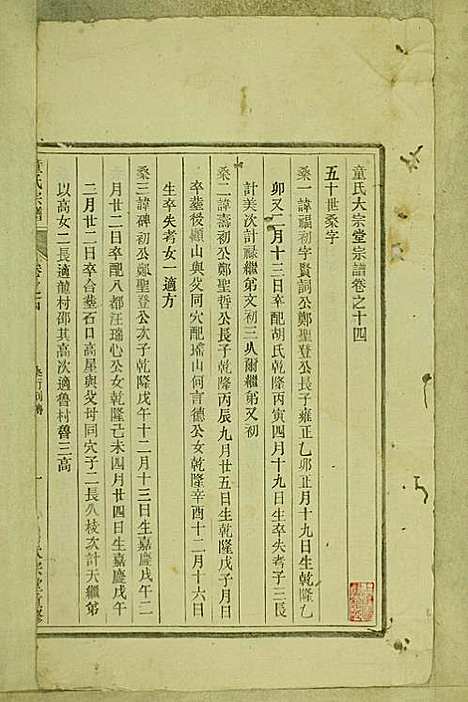 童氏大宗堂宗譜卷之十四
五十世桑字
桑一諱福初字賢詞公鄭聖登公長子雍正乙卯正月十九日生乾隆乙
卯又二月十三日卒配胡氏乾隆丙寅四月十九日生卒失考子三長
計美次計祿繼弟文初三八爾繼弟又初
桑二諱壽初公鄭聖哲公長子乾隆丙辰九月廿五日生乾隆戊子月日
卒塟後巓山與父同穴配瑤山何言德公女乾隆辛酉十二月十六日
生卒失考女一適方
桑三諱碑初公鄭聖登公次子乾隆戊午十二月十三日生嘉慶戊午二
月廿二日卒配八都汪瑞心公女乾隆己未四月廿四日生嘉慶戊午
二月廿二日卒合塟石口高星與父母同穴子二長八枝次計天繼弟
以高女二長適龍村邵其高次適魯村魯三高
童氏宗譜
卷之十四
一